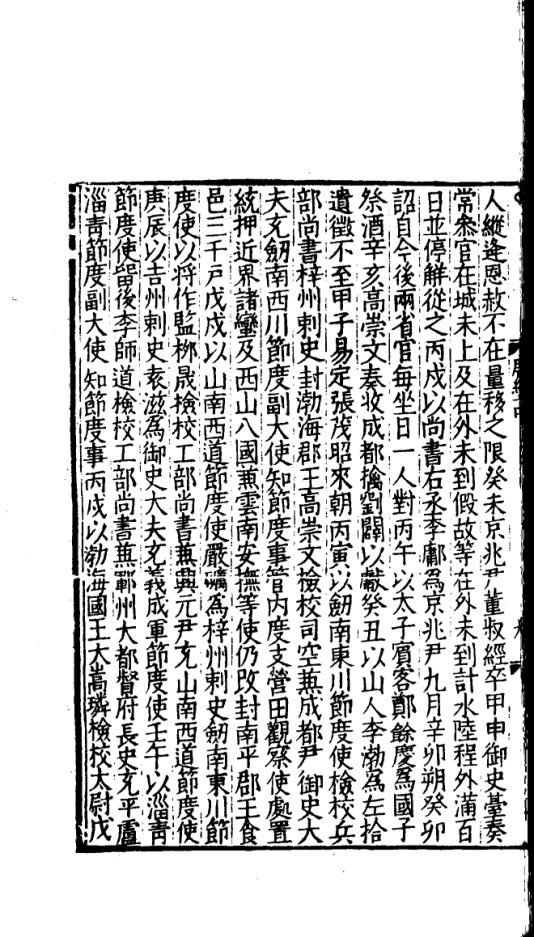 人縱逢恩赦不在量移之限癸未京兆尹董叔經卒甲申御史臺奏
常叅官在城未上及在外未到假故等在外未到計水陸程外滿百
日並停解從之丙戌以尚書右丞李鄘爲京兆尹九月辛卯朔癸卯
詔自今後兩省官每坐日一人對丙午以太子賓客鄭餘慶爲國子
祭酒辛亥高崇文奏收成都擒劉闢以獻癸丑以山人李渤爲左拾
遺徵不至甲子易定張茂昭來朝丙寅以劒南東川節度使檢校兵
部尚書梓州刺史封渤海郡王高崇文檢校司空兼成都尹御史大
夫充劒南西川節度副大使知節度事管內度支營田觀察使處置
統押近界諸蠻及西山八國兼雲南安撫等使仍改封南平郡王食
邑三千戶戊戌以山南西道節度使嚴礪爲梓州刺史劒南東川節
度使以將作監栁晟檢校工部尚書兼興元尹充山南西道節度使
庚辰以吉州刺史袁滋爲御史大夫充義成軍節度使壬午以淄青
節度使留後李師道檢校工部尚書兼鄆州大都督府長史充平盧
淄青節度副大使知節度事丙戌以渤海國王大嵩璘檢校太尉戊